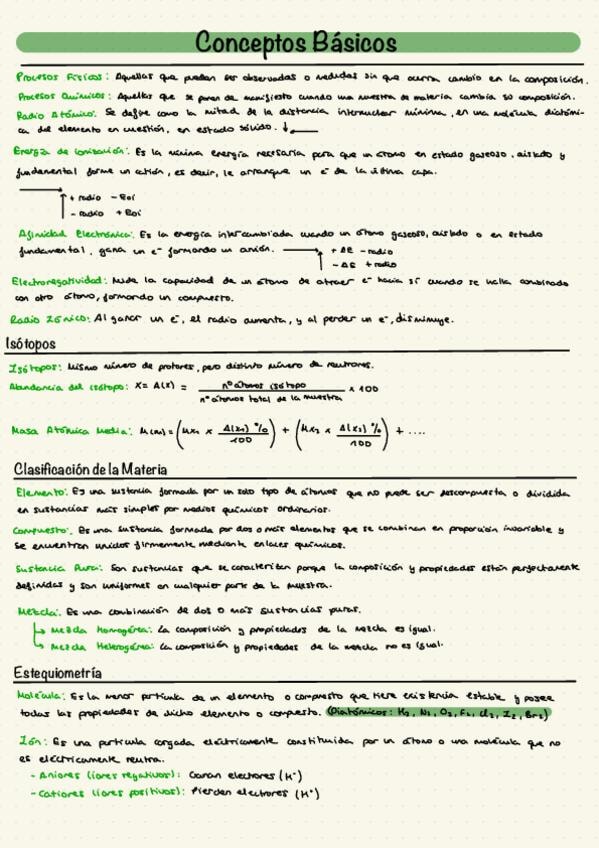 Conceptos Básicos
Procesos Físicos: Aquellas que puedan ser observadas o medidas sin que ocurra cambio en la composición.
Procesos Químicos: Aquellas que se ponen de manifiesto cuando una muestra de materia cambia su composición.
Radio Atómico: Se define como la mitad de la distancia internuclear mínima, en una molécula diatómi-
ca del elemento en cuestión, en estado sólido.
Energía de ionización: Es la mínima energía necesaria para que un átomo en estado gaseoso, aislado y
fundamental forme un catión, es decir, le arranque un e⁻ de la última capa.
+ radio - Eoi
- radio + Eoi
Afinidad Electrónica: Es la energía intercambiada cuando un átomo gaseoso, aislado o en estado
fundamental, gana un e⁻ formando un anión. + ΔE - radio
- ΔE + radio
Electronegatividad: Mide la capacidad de un átomo de atraer e⁻ hacia sí cuando se halla combinado
con otro átomo, formando un compuesto.
Radio Iónico: Al ganar un e⁻, el radio aumenta, y al perder un e⁻, disminuye.
Isótopos
Isótopos: Mismo número de protones, pero distinto número de neutrones.
Abundancia del isótopo: X = A(x) = nº átomos isótopo / nº átomos total de la muestra x 100
Masa Atómica Media: M(m) = (Mx₁ x A(x₁) % / 100) + (Mx₂ x A(x₂) % / 100) + ....
Clasificación de la Materia
Elemento: Es una sustancia formada por un solo tipo de átomos que no puede ser descompuesta o dividida
en sustancias más simples por medios químicos ordinarios.
Compuesto: Es una sustancia formada por dos o más elementos que se combinan en proporción invariable y
se encuentran unidos firmemente mediante enlaces químicos.
Sustancia Pura: Son sustancias que se caracterizan porque la composición y propiedades están perfectamente
definidas y son uniformes en cualquier parte de la muestra.
Mezcla: Es una combinación de dos o más sustancias puras.
Mezcla Homogénea: La composición y propiedades de la mezcla es igual.
Mezcla Heterogénea: La composición y propiedades de la mezcla no es igual.
Estequiometría
Molécula: Es la menor partícula de un elemento o compuesto que tiene existencia estable y posee
todas las propiedades de dicho elemento o compuesto. (Diatómicos: H₂, N₂, O₂, F₂, Cl₂, I₂, Br₂)
Ión: Es una partícula cargada eléctricamente constituida por un átomo o una molécula que no
es eléctricamente neutra.
- Aniones (iones negativos): Ganan electrones (X⁻)
- Cationes (iones positivos): Pierden electrones (X⁺)